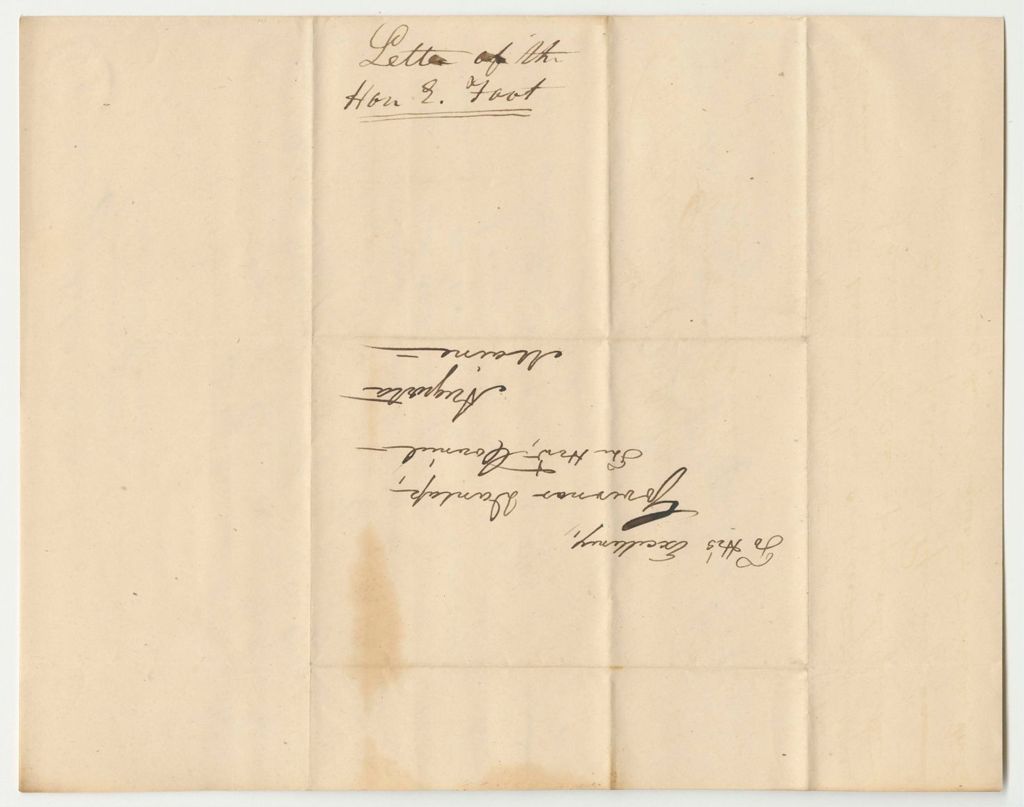 Letter of the
Hon E. Foot
To His Excellency,
Governor Dunlap,
The Hon. Council
Augusta
Maine